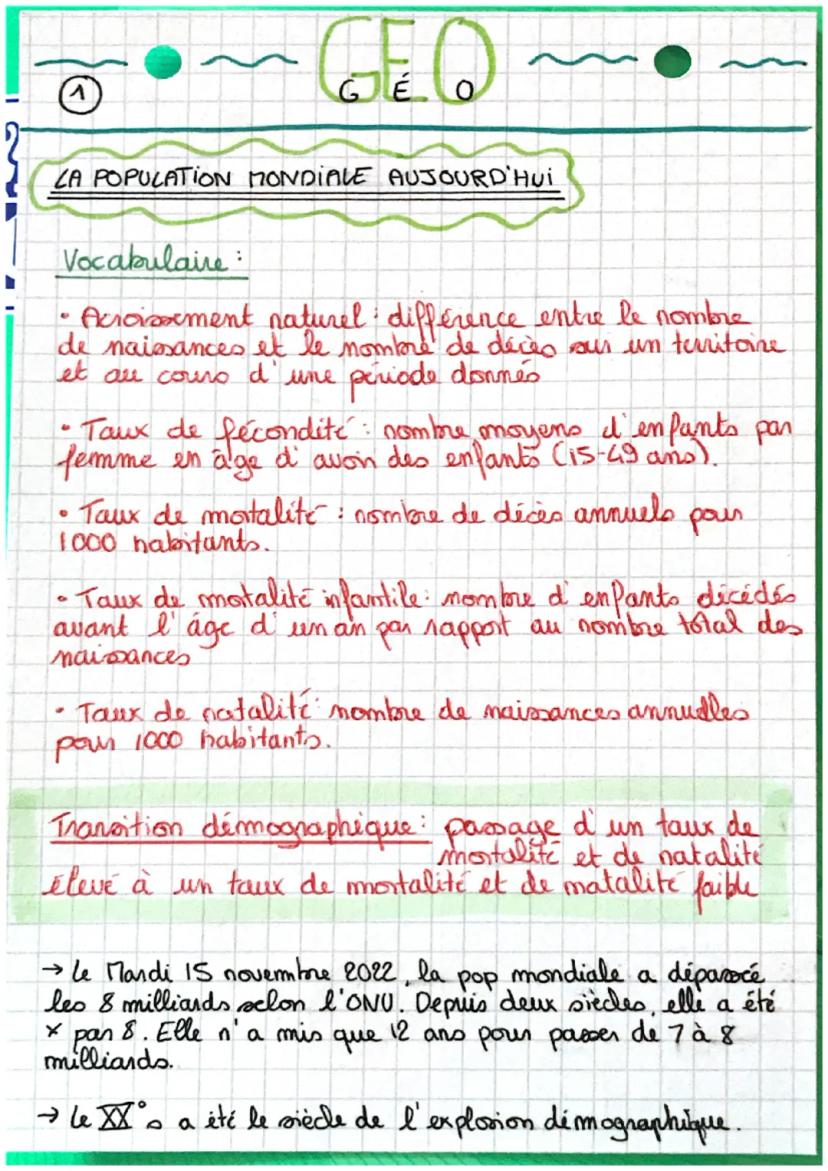 GEO
1
G É O
LA POPULATION MONDIALE AUJOURD'HUI
Vocabulaire :
• Acroissement naturel : différence entre le nombre
de naissances et le nombre de décès sur un territoire
et au cours d'une période donnés
• Taux de fécondité : nombre moyens d'enfants par
femme en âge d'avoir des enfants (15-49 ans).
• Taux de mortalité : nombre de décès annuels pour
1000 habitants.
• Taux de motalité infantile : nombre d'enfants décédés
avant l'âge d'un an par rapport au nombre total des
naissances
• Taux de natalité : nombre de naissances annuelles
pour 1000 habitants.
Transition démographique : passage d'un taux de
mortalité et de natalité
élevé à un taux de mortalité et de natalité faible
→ Le Mardi 15 novembre 2022, la pop mondiale a dépassé
les 8 milliards selon l'ONU. Depuis deux siècles, elle a été
× par 8. Elle n'a mis que 12 ans pour passer de 7 à 8
milliards.
→ Le XX°s a été le siècle de l'explosion démographique.